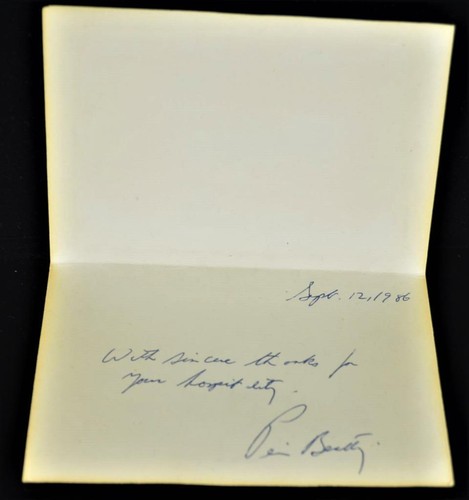 Sept. 12, 1986
With sincere thanks for
your hospitality.
Beatty